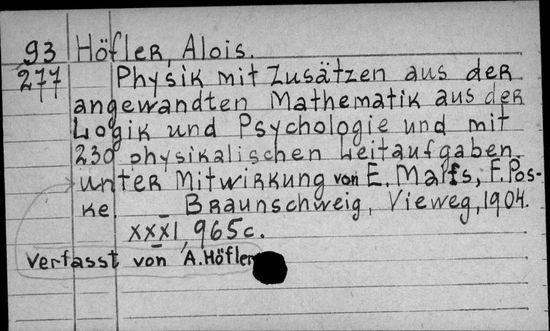 93 Höfler, Alois.
277 Physik mit Zusätzen aus der
angewandten Mathematik aus der
Logik und Psychologie und mit
230 physikalischen Leitaufgaben.
unter Mitwirkung von E. Maiss, F. Pos-
ke. _ Braunschweig, Vieweg, 1904.
XXXI, 965c.
Verfasst von A. Höfler